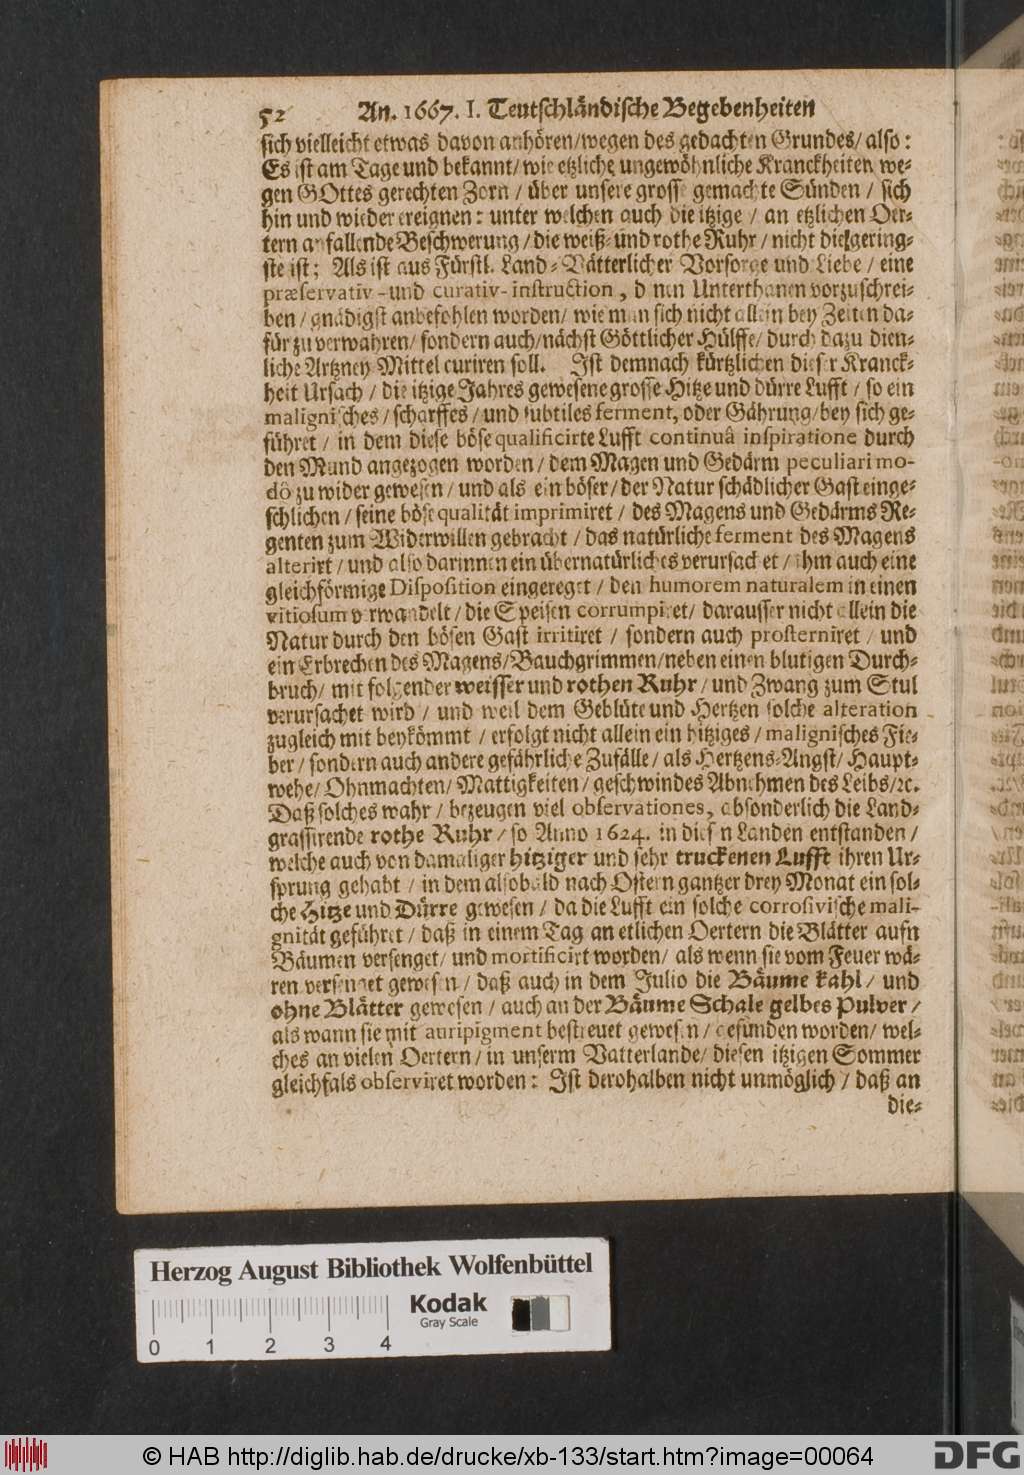 52 An. 1667. I. Teutschländische Begebenheiten
sich vielleicht etwas davon anhören/wegen des gedachten Grundes/ also:
Es ist am Tage und bekannt/ wie etzliche ungewöhnliche Kranckheiten we-
gen GOttes gerechten Zorn / über unsere grosse gemachte Sünden / sich
hin und wieder ereignen: unter welchen auch die itzige / an etzlichen Oer-
tern anfallende Beschwerung / die weiß- und rothe Ruhr / nicht die gering-
ste ist; Als ist aus Fürstl. Land-Vätterlicher Vorsorge und Liebe / eine
præservativ-und curativ-instruction, denen Unterthanen vorzuschrei-
ben / gnädigst anbefohlen worden/ wie man sich nicht allein bey Zeiten da-
für zu verwahren/ sondern auch/nächst Göttlicher Hülffe/ durch dazu dien-
liche Artzney Mittel curiren soll. Ist demnach kürtzlichen dieser Kranck-
heit Ursach / die itzige Jahres gewesene grosse Hitze und dürre Lufft / so ein
malignisches / scharffes / und subtiles ferment, oder Gährung/bey sich ge-
führet / in dem diese böse qualificirte Lufft continuâ inspiratione durch
den Mund angezogen worden / dem Magen und Gedärm peculiari mo-
dô zu wider gewesen / und als ein böser / der Natur schädlicher Gast einge-
schlichen / seine böse qualität imprimiret / des Magens und Gedärms Re-
genten zum Widerwillen gebracht / das natürliche ferment des Magens
alterirt / und also darinnen ein übernatürliches verursachet / ihm auch eine
gleichförmige Disposition eingereget / den humorem naturalem in einen
vitiosum verwandelt / die Speisen corrumpiret/ darausser nicht allein die
Natur durch den bösen Gast irritiret / sondern auch prosterniret / und
ein Erbrechen des Magens/Bauchgrimmen/neben einen blutigen Durch-
bruch/ mit folgender weisser und rothen Ruhr / und Zwang zum Stul
verursachet wird / und weil dem Geblüte und Hertzen solche alteration
zugleich mit beykömmt / erfolgt nicht allein ein hitziges / malignisches Fie-
ber / sondern auch andere gefährliche Zufälle / als Hertzens-Angst/ Haupt-
wehe/ Ohnmachten/ Mattigkeiten / geschwindes Abnehmen des Leibs/ꝛc.
Daß solches wahr / bezeugen viel observationes, absonderlich die Land-
grassirende rothe Ruhr / so Anno 1624. in diesen Landen entstanden /
welche auch von damaliger hitziger und sehr truckenen Lufft ihren Ur-
sprung gehabt / in dem alsobald nach Ostern gantzer drey Monat ein sol-
che Hitze und Dürre gewesen / da die Lufft ein solche corrosivische mali-
gnität geführet / daß in einem Tag an etlichen Oertern die Blätter aufn
Bäumen versenget/ und mortificirt worden/ als wenn sie vom Feuer wä-
ren versenget gewesen / daß auch in dem Julio die Bäume kahl / und
ohne Blätter gewesen / auch an der Bäume Schale gelbes Pulver /
als wann sie mit auripigment bestreuet gewesen / gefunden worden/ wel-
ches an vielen Oertern / in unserm Vatterlande/ diesen itzigen Sommer
gleichfals observiret worden: Ist derohalben nicht unmöglich / daß an
die-
Herzog August Bibliothek Wolfenbüttel
Kodak
Gray Scale
0 1 2 3 4
© HAB http://diglib.hab.de/drucke/xb-133/start.htm?image=00064
DFG